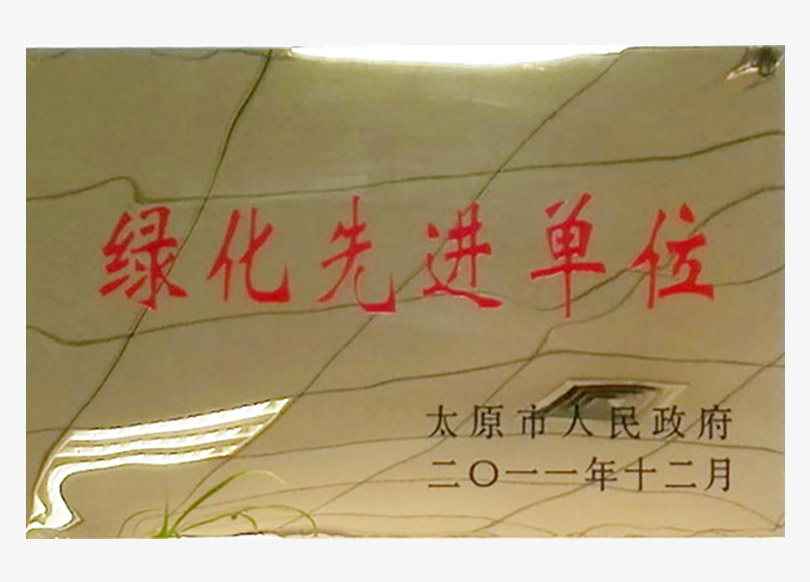 绿化先进单位
太原市人民政府
二〇一一年十二月